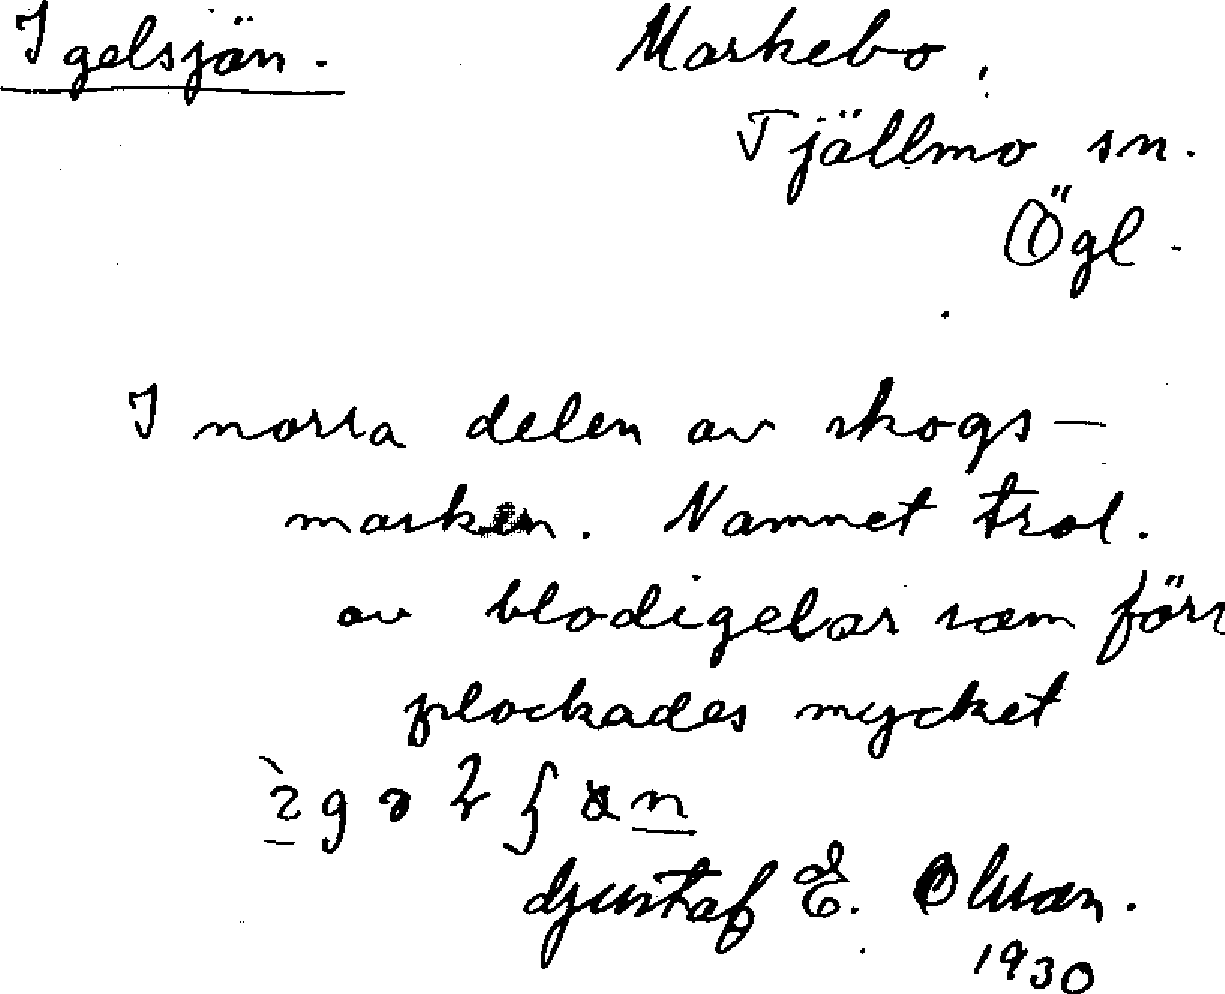 Igelsjön. Markebo,
Tjällmo sn.
Ögl.
I norra delen av skogs-
marken. Namnet trol.
av blodigelar som förr
plockades mycket
Gustaf E. Olsson.
1930